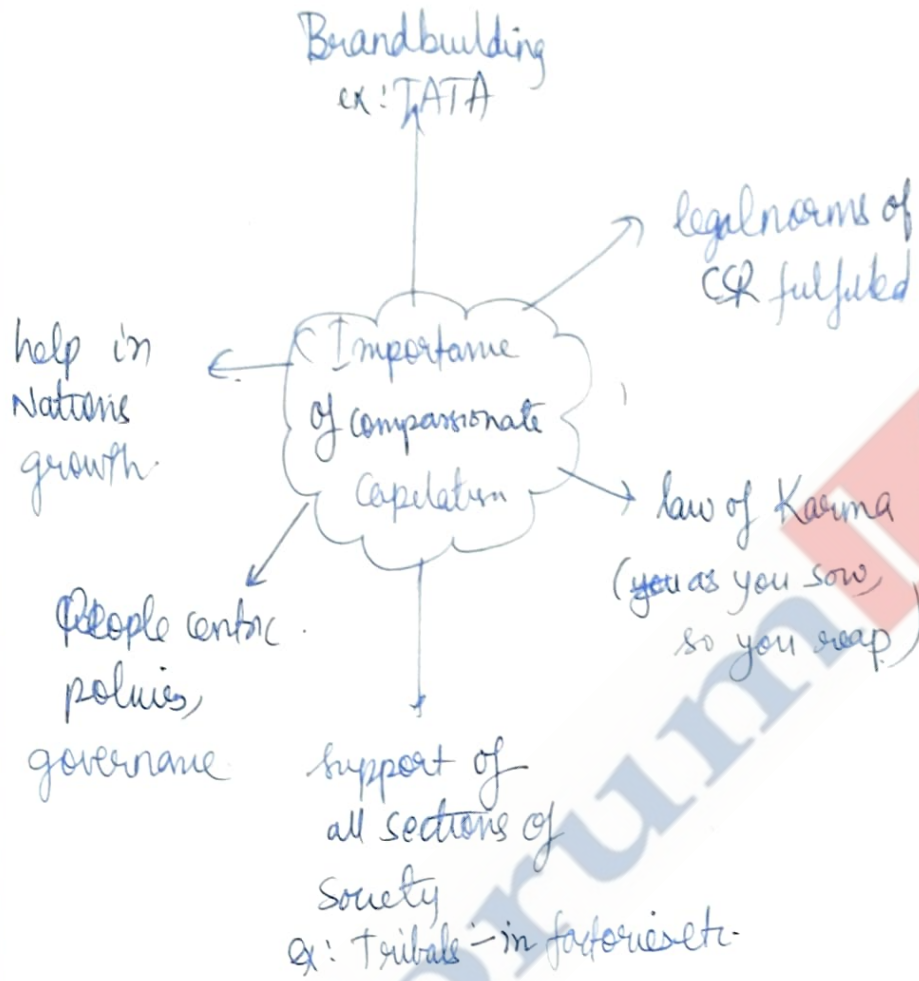 Brandbuilding
ex: TATA
legal norms of
CSR fulfilled
help in
Nations
growth.
Importance
of compassionate
Capitalism
law of Karma
(you as you sow,
so you reap)
People centric
policies,
governance
support of
all sections of
Society
ex: Tribals - in factories etc.
orum